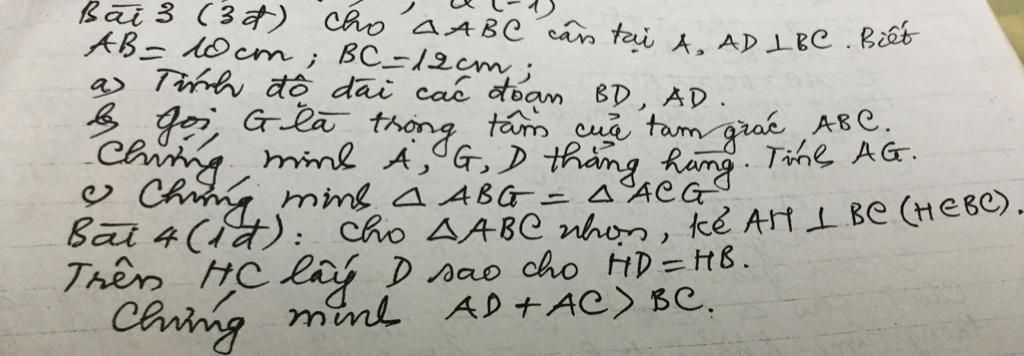 Bài 3 (3đ) Cho △ABC cân tại A, AD⊥BC. Biết
AB = 10cm; BC = 12cm;
a) Tính độ dài các đoạn BD, AD.
b gọi G là trọng tâm của tam giác ABC.
Chứng minh A, G, D thẳng hàng. Tính AG.
c) Chứng minh △ ABG = △ ACG
Bài 4 (1đ): Cho △ABC nhọn, kẻ AH ⊥ BC (H∈BC).
Trên HC lấy D sao cho HD = HB.
Chứng minh AD + AC > BC.